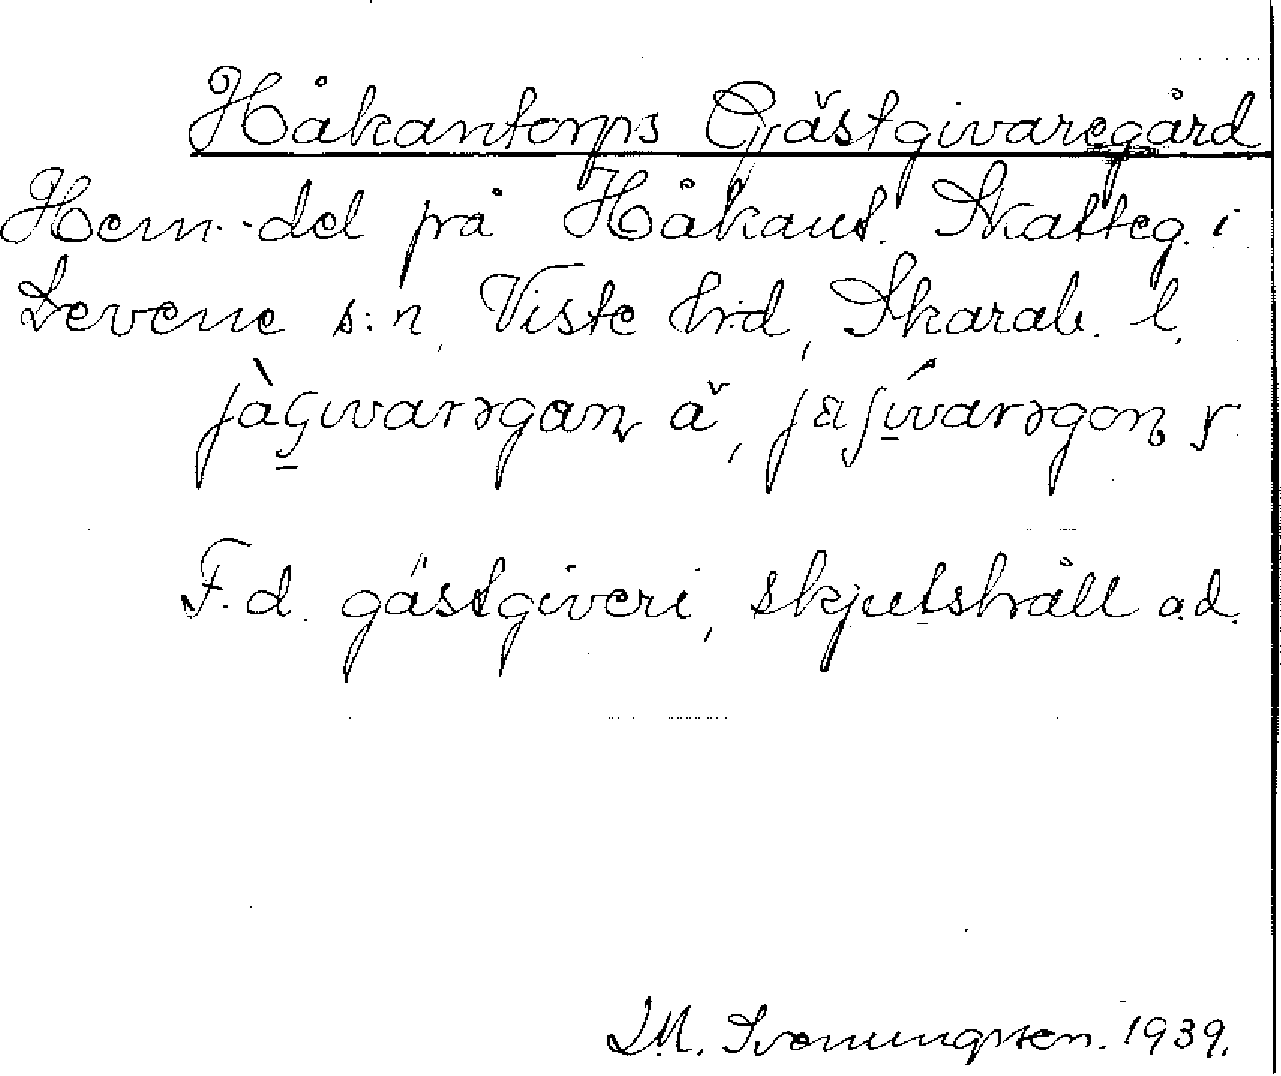 Håkantorps Gästgivaregård
Hem.-del på Håkant. Skatteg. i
Levene s:n, Viste hrd, Skarab. l.
F.d. gästgiveri, skjutshåll a.d.
1939.